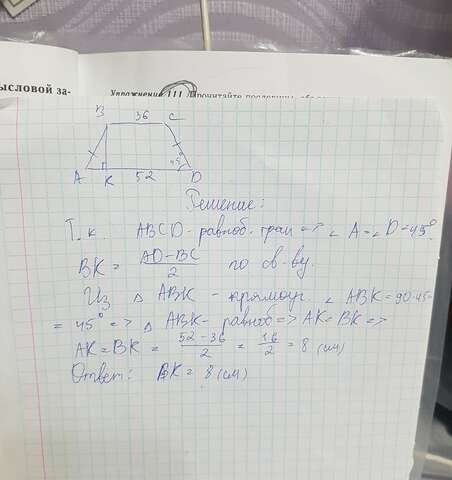 ысловой за-
Упражнение 111 Прочитайте пословицы
B 36 C
45°
A K 52 D
Решение:
Т.к. ABCD - равноб. трап => ∠A=∠D=45°
BK = AD-BC/2 по св-ву.
Из △ ABK - прямоуг. ∠ABK=90-45=
= 45° => △ ABK - равноб => AK=BK =>
AK=BK = 52-36/2 = 16/2 = 8 (см)
Ответ: BK = 8 (см)